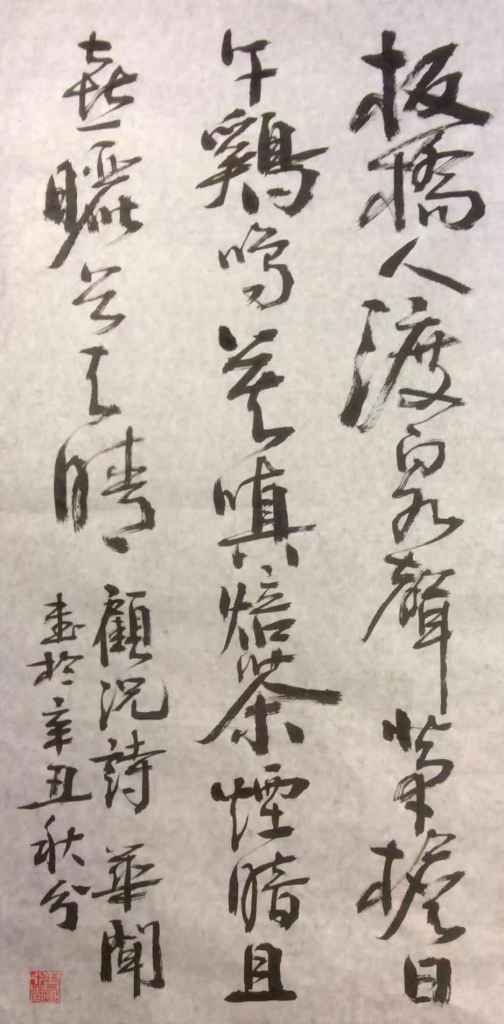 板橋人渡泉聲茅檐日
午鷄鳴莫嗔焙茶煙暗且
喜曬谷天晴
顧況詩 華聞
書於辛丑秋分